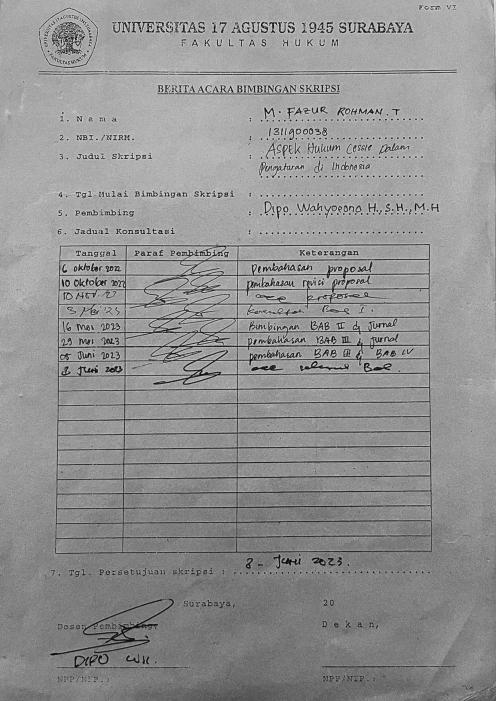 Form VI
UNIVERSITAS 17 AGUSTUS 1945 SURABAYA
FAKULTAS HUKUM
BERITA ACARA BIMBINGAN SKRIPSI
1. Nama : M. FAZUR ROHMAN. T
2. NBI./NIRM. : 1311900038
3. Judul Skripsi : ASPEK Hukum Cessie Dalam
Pengaturan di Indonesia
4. Tgl Mulai Bimbingan Skripsi :
5. Pembimbing : Dipo Wahyoeono H., S.H., M.H
6. Jadual Konsultasi :
Tanggal Paraf Pembimbing Keterangan
6 Oktober 2022 Pembahasan proposal
10 Oktober 2022 pembahasan revisi proposal
10 Nov. 22 acc proposal
3 Mei '23 Konsultasi Bab I.
16 Mei 2023 Bimbingan BAB II & Jurnal
29 Mei 2023 pembahasan BAB III & Jurnal
05 Juni 2023 pembahasan BAB III & BAB IV
8 Juni 2023 acc seluruh Bab.
7. Tgl. Persetujuan skripsi : 8 - Juni 2023.
Surabaya, 20
Dosen Pembimbing, Dekan,
DIPO WH.
NPP/NIP.: NPP/NIP.: